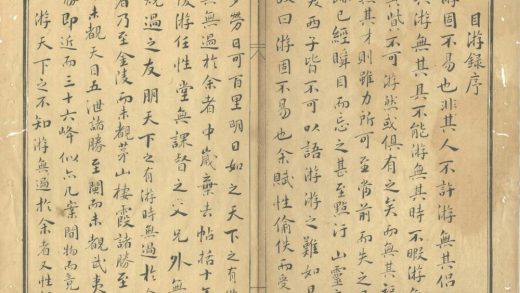 目游錄序
游固不易也非其人不許游無其侶
與游無其具不能游無其時不暇游
其貲不可游然或俱有之矣而無其
與其才則雖力所可至當前而失之
跡已經瞬目而忘之甚至點汙山靈
西子皆不可以語游游之難如是
故曰游固不易也余賦性偷佚而受
少勞日可百里明日如之天下之有
具無過於余者中歲棄去帖括十年
優游任性堂無課督之父兄外無
規過之友朋天下之有游時無過於
者乃至金陵而未觀茅山棲霞諸勝至
未觀天目五泄諸勝至閩而未觀武夷
勝即近而三十六峰似亦几案間物而竟
游天下之不知游無過於余者又性